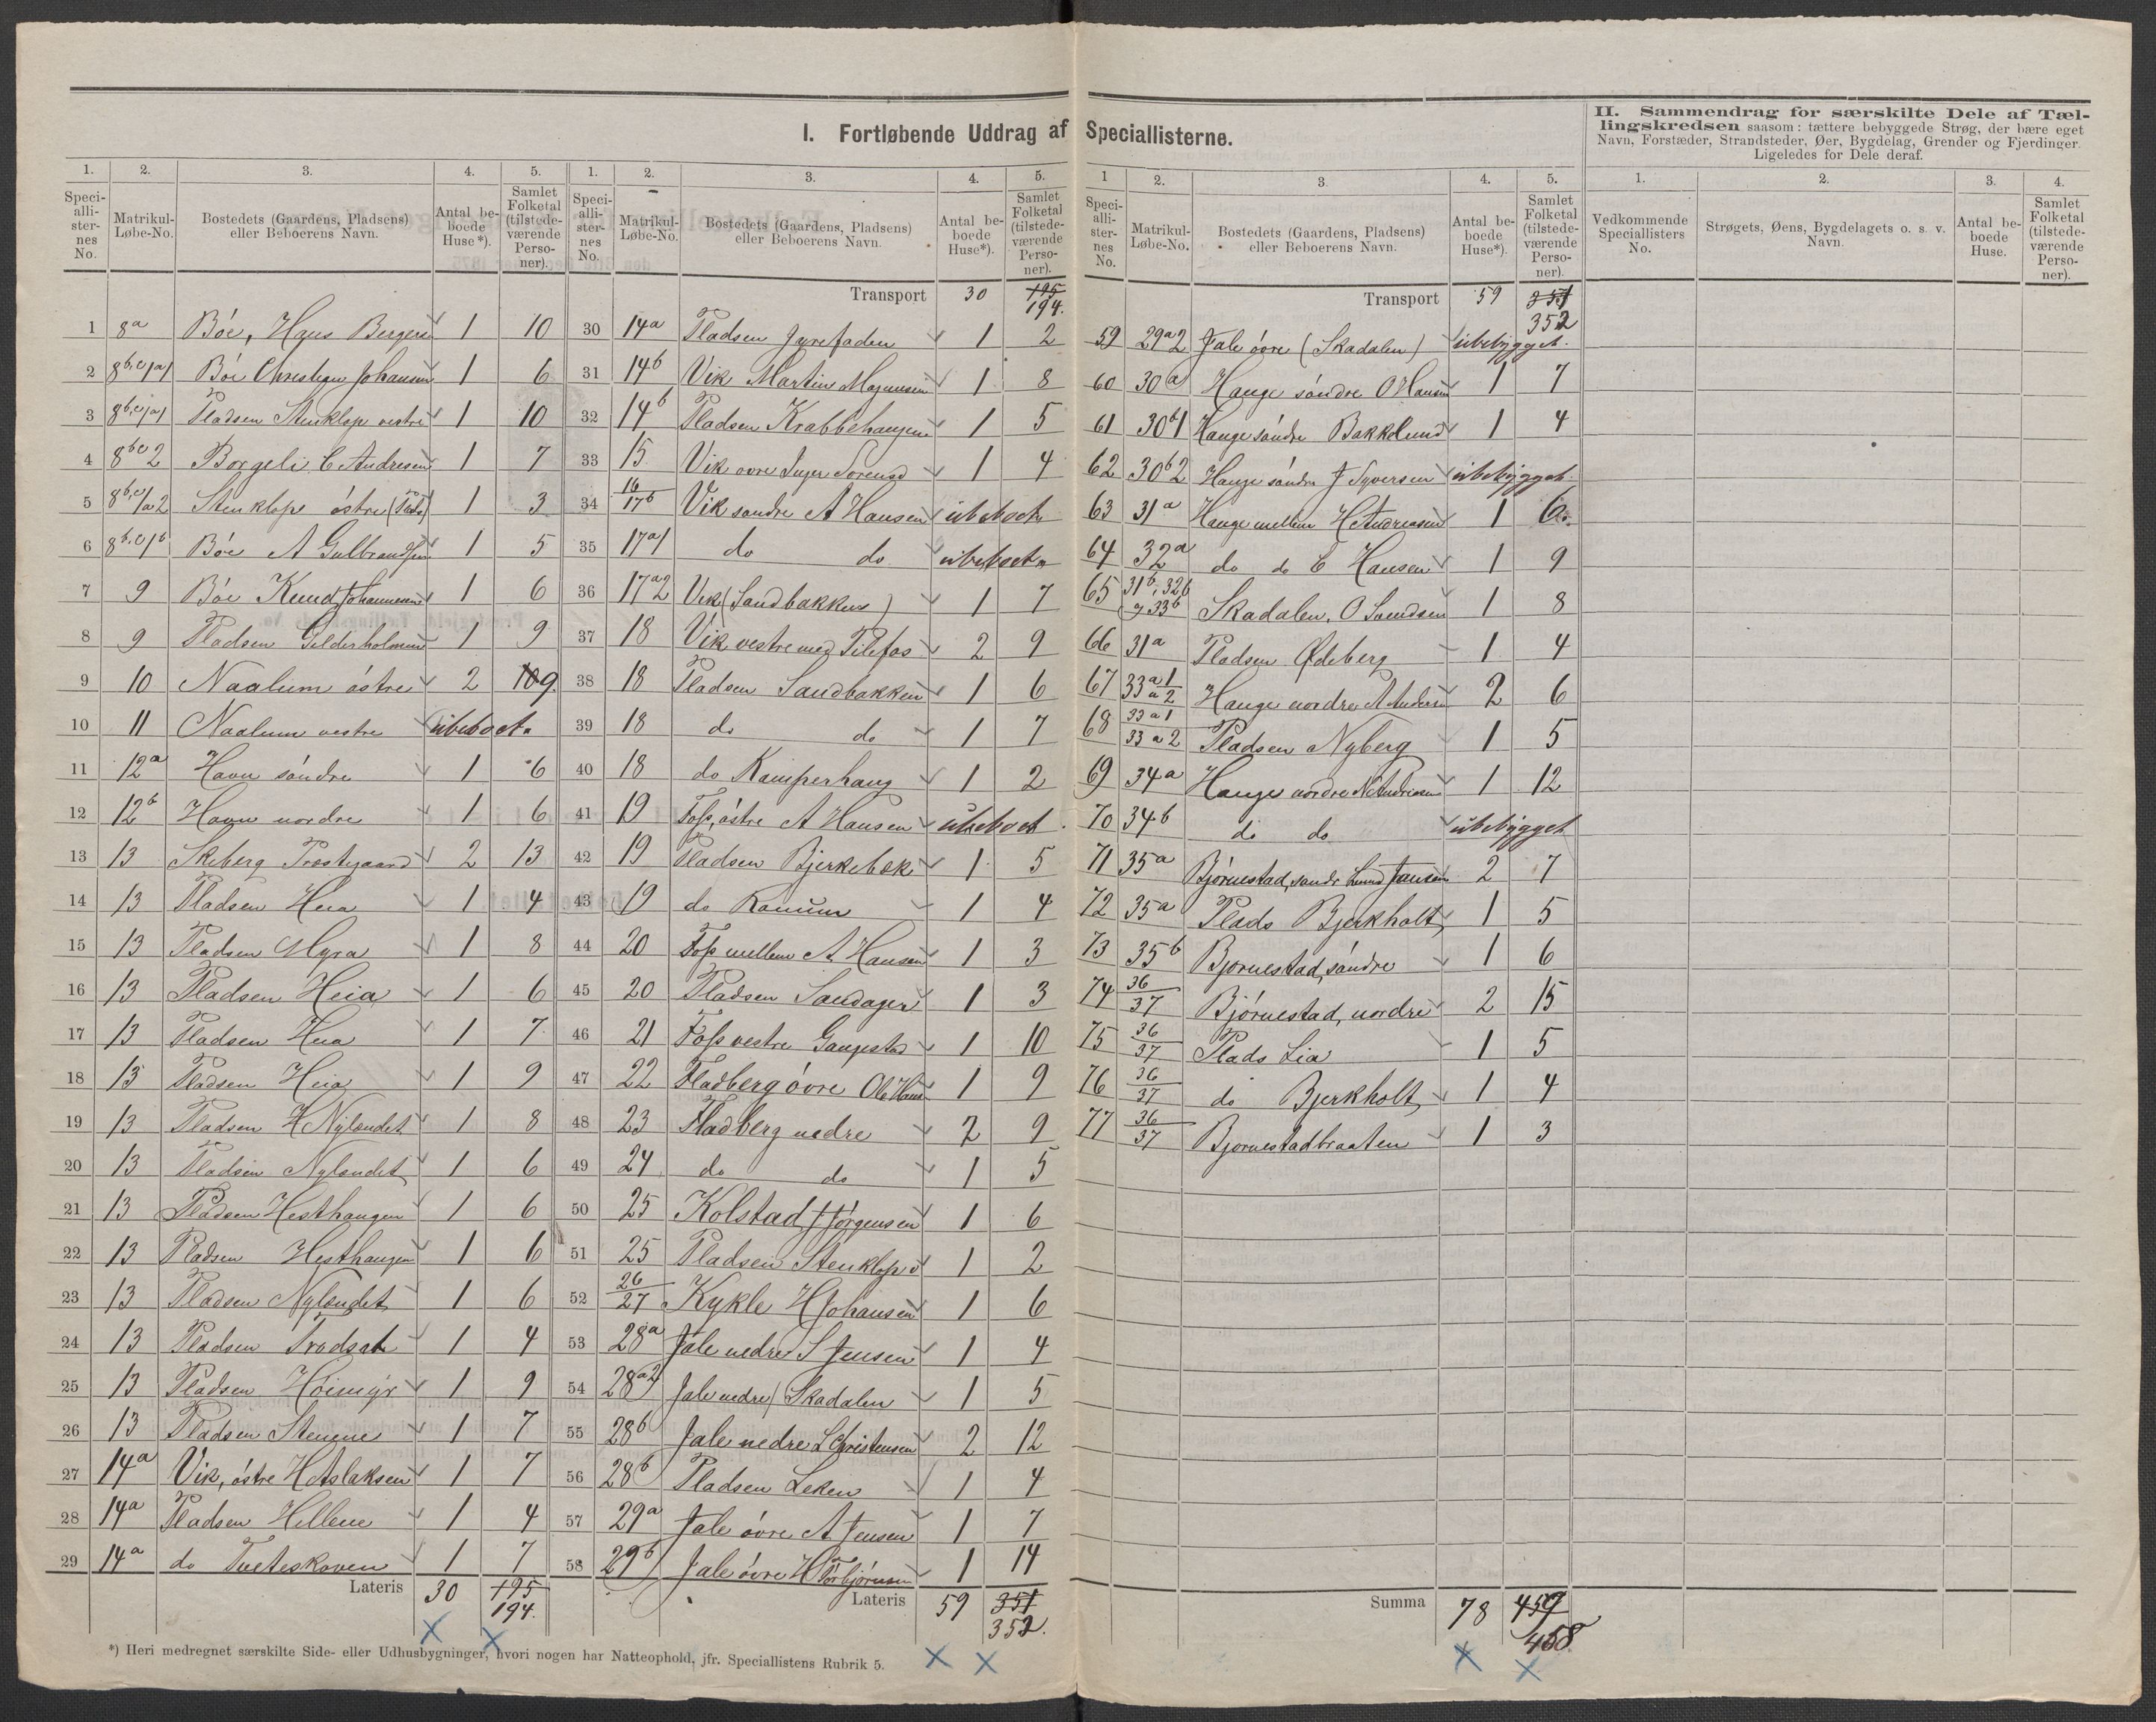 I. Fortløbende Uddrag af Speciallisterne.
II. Sammendrag for særskilte Dele af Tæl-
lingskredsen saasom: tættere bebyggede Strøg, der bære eget
Navn, Forstæder, Strandsteder, Øer, Bygdelag, Grender og Fjerdinger.
Ligeledes for Dele deraf.
1. 2. 3. 4. 5.
Speci-alli-ster-nes No. Matrikul-Løbe-No. Bostedets (Gaardens, Pladsens) eller Beboerens Navn. Antal be-boede Huse*). Samlet Folketal (tilstede-værende Perso-ner).
1 8a Bóe, Hans Bergers 1 10
2 8b,c/a1 Bóe Christian Johansen 1 6
3 8b,c/a1 Pladsen Stenklop vestre 1 10
4 8bc2 Borgeli C Andresen 1 7
5 8b,c/a2 Stenklop óstre (Plads) 1 3
6 8b,c/b Bóe A Gulbrandsen 1 5
7 9 Bóe Knud Johannesen 1 6
8 9 Pladsen Gilderholmen 1 9
9 10 Naalum óstre 2 109.
10 11 Naalum vestre ubeboet.
11 12a Havn sóndre 1 6
12 12b Havn nordre 1 6
13 13 Skeberg Præstegaard 2 13
14 13 Pladsen Heia 1 4
15 13 Pladsen Myra 1 8
16 13 Pladsen Heia 1 6
17 13 Pladsen Heia 1 7
18 13 Pladsen Heia 1 9
19 13 Pladsen H Nylandet 1 8
20 13 Pladsen Nylandet 1 6
21 13 Pladsen Hesthaugen 1 6
22 13 Pladsen Hesthaugen 1 6
23 13 Pladsen Nylandet 1 6
24 13 Pladsen 1 4
25 13 Pladsen Hóimyr 1 9
26 13 Pladsen Stenene 1 7
27 14a Vik, óstre H Aslaksen 1 7
28 14a Pladsen Hellene 1 4
29 14a do Tueteskoven 1 7
Lateris 30 195
194.
*) Heri medregnet særskilte Side- eller Udhusbygninger, hvori nogen har Natteophold, jfr. Speciallistens Rubrik 5.
1. 2. 3. 4. 5.
Speci-alli-ster-nes No. Matrikul-Løbe-No. Bostedets (Gaardens, Pladsens) eller Beboerens Navn. Antal be-boede Huse*). Samlet Folketal (tilstede-værende Perso-ner).
Transport 30 195
194.
30 14a Pladsen Jyrefaden 1 2
31 14b Vik Martin Magnusen 1 8
32 14b Pladsen Krabbehaugen 1 5
33 15 Vik ovre Inger Sorensd 1 4
34 16/17b Vik sondre A Hansen ubeboet
35 17a1 do do ubeboet
36 17a2 Vik (Sandbakken) 1 7
37 18 Vik vestre med Tilefos 2 9
38 18 Pladsen Sandbakken 1 6
39 18 do do 1 7
40 18 do Kamperhaug 1 2
41 19 Foss, óstre A Hansen ubeboet.
42 19 Pladsen Bjerkebæk 1 5
43 19 do 1 4
44 20 Foss mellem A Hansen 1 3
45 20 Pladsen Sandager 1 3
46 21 Foss vestre Gaugestad 1 10
47 22 Fladberg óvre Ole Hans 1 9
48 23 Fladberg nedre 2 9
49 24 do do 1 5
50 25 Kolstad J Jórgensen 1 6
51 25 Pladsen Stenklop 1 2
52 26/27 Kykle H Johansen 1 6
53 28a Jale nedre S Jensen 1 4
54 28a2 Jale nedre / Skadalen 1 5
55 28b Jale nedre L Christensen 2 12
56 28b Pladsen Leken 1 4
57 29a Jale óvre A Jensen 1 7
58 29b Jale óvre H Torbjórnsen 1 14
Lateris 59 351
352.
1 2. 3. 4. 5.
Speci-alli-ster-nes No. Matrikul-Løbe-No. Bostedets (Gaardens, Pladsens) eller Beboerens Navn. Antal be-boede Huse*). Samlet Folketal (tilstede-værende Perso-ner).
Transport 59 351
352
59 29a2 Jale óvre (Skadalen) ubebygget.
60 30a Hauge sóndre O Hansen 1 7
61 30b1 Hauge sóndre Bakkelund 1 4
62 30b2 Hauge sóndre J Syversen ubebygget.
63 31a Hauge mellem H Andreasen 1 6.
64 32a do do E Hansen 1 9
65 31b, 32b og 33b Skadalen, O Svendsen 1 8
66 31a Pladsen Ødeberg 1 4
67 33a1/a2 Hauge nordre A Anders 2 6
68 33a1/33a2 Pladsen Nyberg 1 5
69 34a Hauge nordre N Andreasen 1 12
70 34b do do ubebygget
71 35a Bjórnestad, sóndr Jensen 2 7
72 35a Plads Bjerkholt 1 5
73 35b Bjornestad, sóndre 1 6
74 36/37 Bjórnestad, nordre 2 15
75 36/37 Plads Lia 1 5
76 36/37 do Bjerkholt 1 4
77 36/37 Bjornestadbraaten 1 3
Summa 78 459
458
1. 2. 3. 4.
Vedkommende Speciallisters No. Strøgets, Øens, Bygdelagets o. s. v. Navn. Antal be-boede Huse. Samlet Folketal (tilstede-værende Perso-ner).